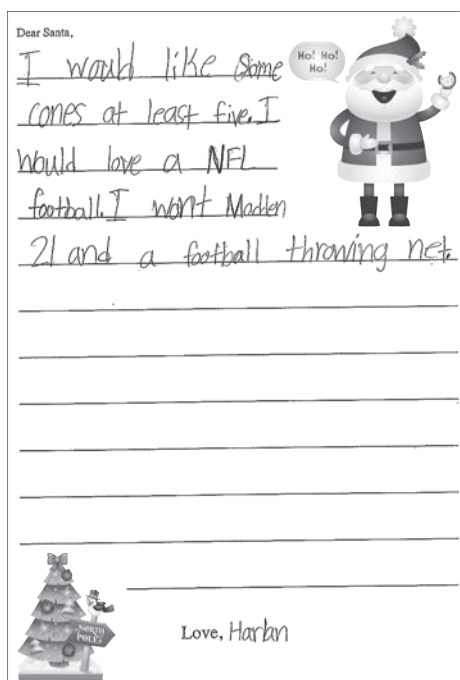 Dear Santa,
Ho! Ho!
Ho!
I would like some
cones at least five. I
would love a NFL
football. I want Madden
21 and a football throwing net.
NORTH
POLE
Love, Harlan